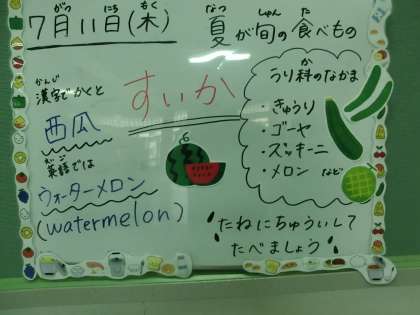 がつ にち もく
7月11日(木)
なつ しゅん た
夏が旬の食べもの
すいか
かんじ
漢字でかくと
西瓜
えいご
英語では
ウォーターメロン
(watermelon)
か
うり科のなかま
・きゅうり
・ゴーヤ
・ズッキーニ
・メロン など
たねにちゅういして
たべましょう